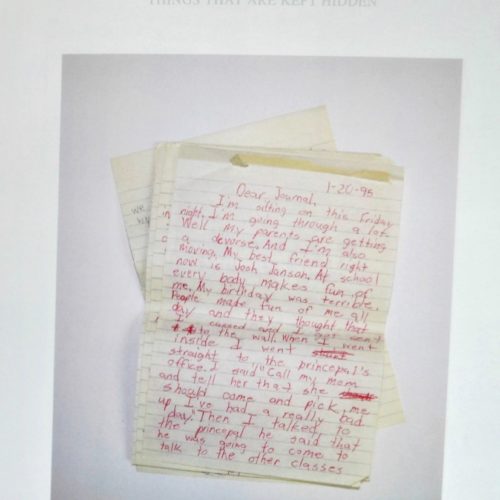 THINGS THAT ARE KEPT HIDDEN
we
1-20-95
Dear, Journal,
I'm sitting on this Friday
night. I'm going through a lot.
Well my parents are getting
a devorse. And I'm also
moving. My best friend right
now is Josh Janson. At school
every body makes fun of
me. My birthday was terrible.
People made fun of me all
day and they thought that
I and I just went
to the wall. When I went
inside I went
straight to the princepal's
office. I said "Call my mom
and tell her that she
should come and pick me
up I've had a really bad
day." Then I talked to
the princepal he said that
he was going to come to
talk to the other classes